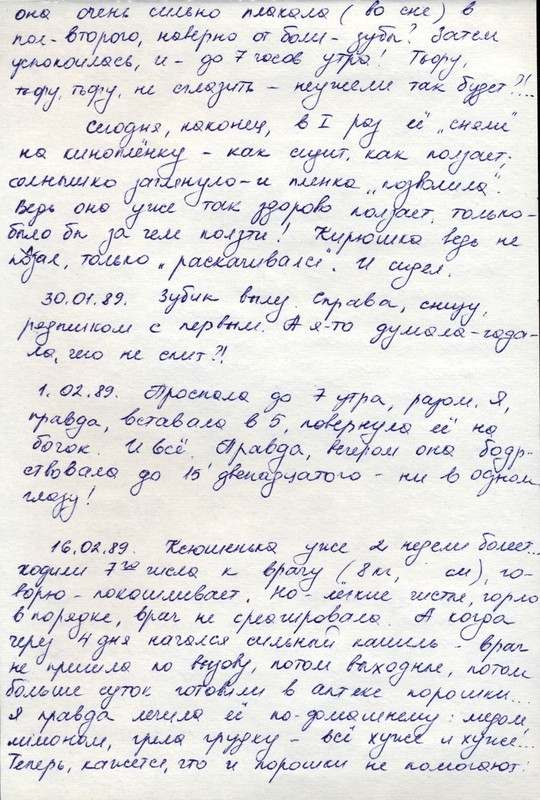 она очень сильно плакала (во сне) в
пол-второго, наверно от боли - зубы? Затем
успокоилась, и - до 7 часов утра! Тьфу,
тьфу, тьфу, не сглазить - неужели так будет?!..
Сегодня, наконец, в I раз её „сняли"
на киноплёнку - как сидит, как ползает;
солнышко заглянуло - и пленка „позволила".
Ведь она уже так здорово ползает, только-
было бы за чем ползти! Кирюшка ведь не
ползал, только „раскачивался". И сидел.
30.01.89. Зубик вылез. Справа, снизу,
рядышком с первым. А я-то думала-гада-
ла, чего не спит?!
1.02.89. Проспала до 7 утра, разом. Я,
правда, вставала в 5, повернула её на
бочок. И всё. Правда, вечером она бодр-
ствовала до 15' двенадцатого - ни в одном
глазу!
16.02.89. Ксюшенька уже 2 недели болеет...
ходили 7го числа к врачу (8кг, см), го-
ворю - покашливает, но - лёгкие чистые, горло
в порядке, врач не среагировала. А когда
через 4 дня начался сильный кашель - врач
не пришла по вызову, потом выходные, потом
больше суток готовили в аптеке порошки...
Я правда лечила её по-домашнему: медом,
лимоном, грела грудку - всё хуже и хуже...
Теперь, кажется, что и порошки не помогают!